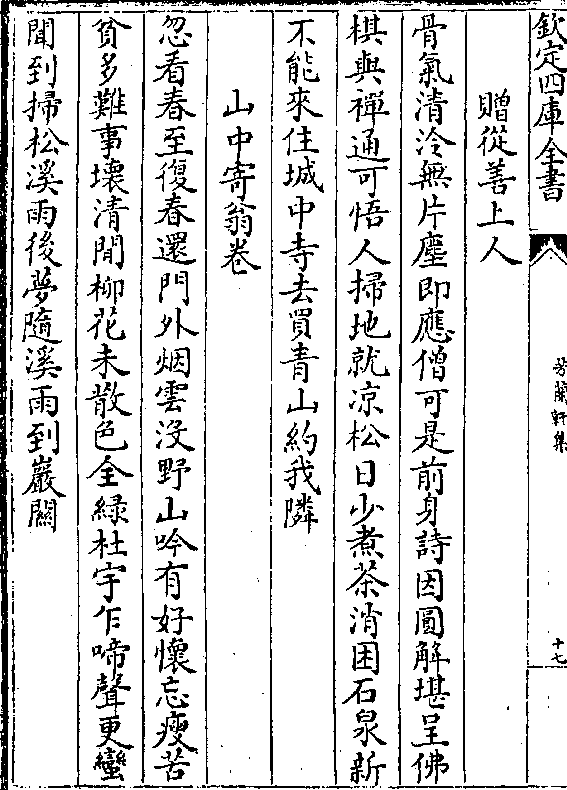 欽定四庫全書
芳蘭軒集
十七
贈從善上人
骨氣清泠無片塵即應僧可是前身詩因圓解堪呈佛
棋與禪通可悟人掃地就凉松日少煮茶消困石泉新
不能來住城中寺去買青山約我隣
山中寄翁卷
忽看春至復春還門外烟雲沒野山吟有好懷忘瘦苦
貧多難事壞清閒柳花未散色全緑杜宇乍啼聲更蠻
聞到掃松溪雨後夢隨溪雨到巖闗